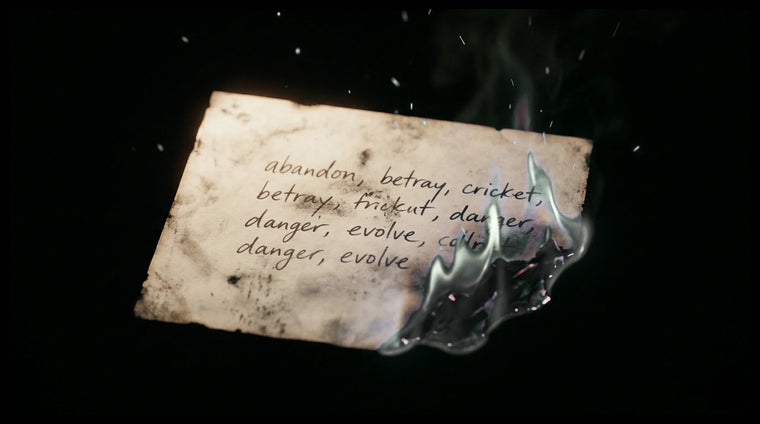 abandon, betray, cricket,
betray, frickut, danger,
danger, evolve,
danger, evolve